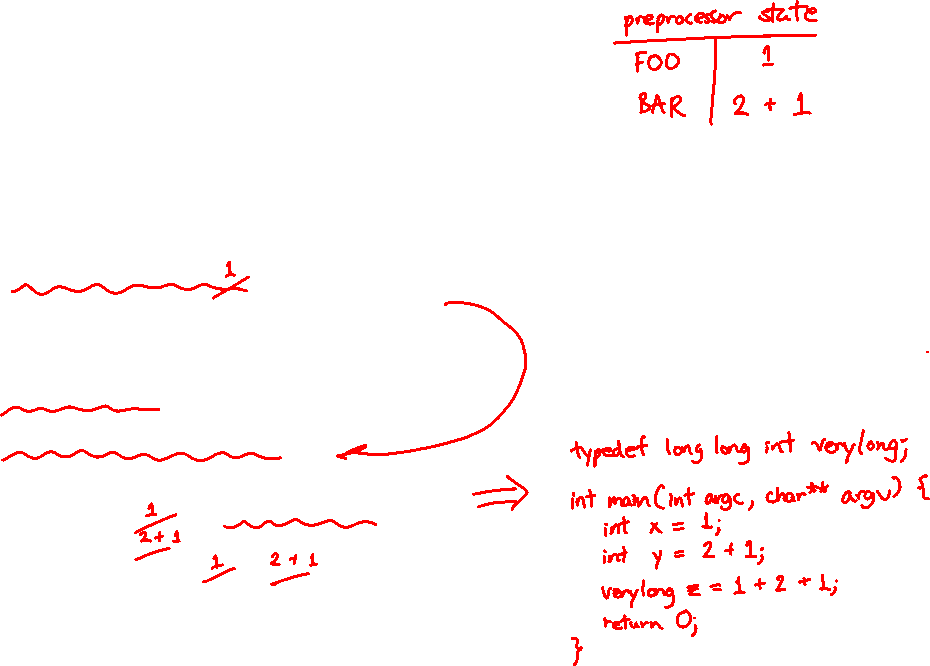 preprocessor state
FOO 1
BAR 2 + 1
1
typedef long long int verylong;
int main(int argc, char** argv) {
1
int x = 1;
2 + 1
int y = 2 + 1;
1 2 + 1
verylong z = 1 + 2 + 1;
return 0;
}